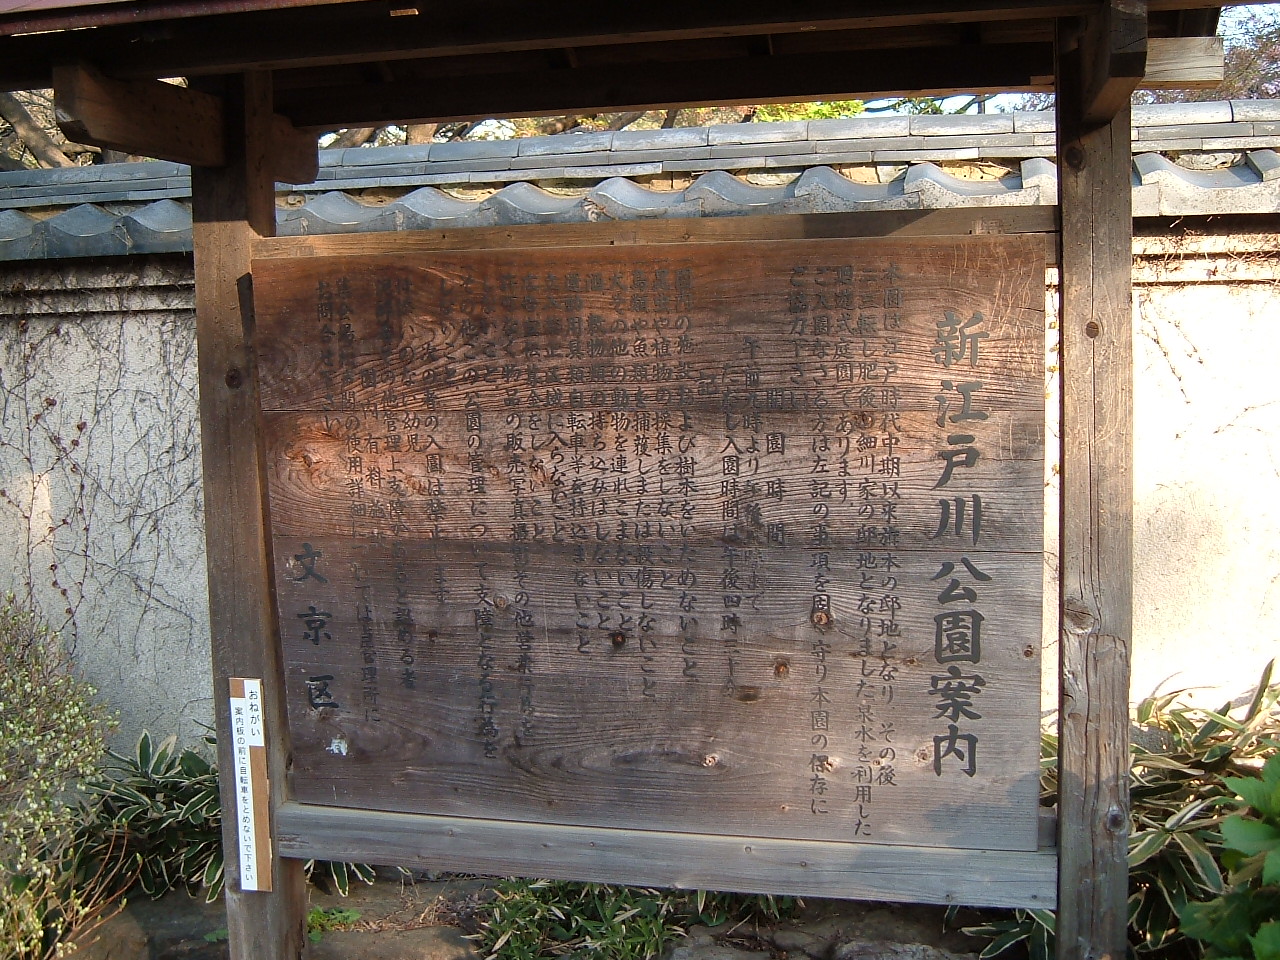 新江戸川公園案内
本園は江戸時代中期以来旗本の邸地となり その後
二三転し肥後の細川家の邸地となりました 泉水を利用した
廻遊式庭園であります。
ご入園なさる方は左記の事項を固く守り本園の保存に
ご協力下さい
開園時間
午前九時より午後 時まで
ただし入園時間は午後四時三十分
園内の施設および樹木をいためないこと
昆虫や植物の採集をしないこと
鳥類や魚類を捕獲しまたは殺傷しないこと
犬その他の動物を連れこまないこと
酒 物類の持ち込みはしないこと
運動用具類自転車等を持込まないこと
立入禁止区域に入らないこと
募金をしないこと
許可なく物品の販売写真撮影その他営業行為を
しないこと
その他この公園の管理について支障となる行為を
しないこと
の者の入園は禁止します
いない幼児
その他管理上支障があると認める者
園内有料施設
集会場 の使用詳細については管理所に
お問合せ下さい
文京区
おねがい
案内板の前に自転車をとめないで下さい